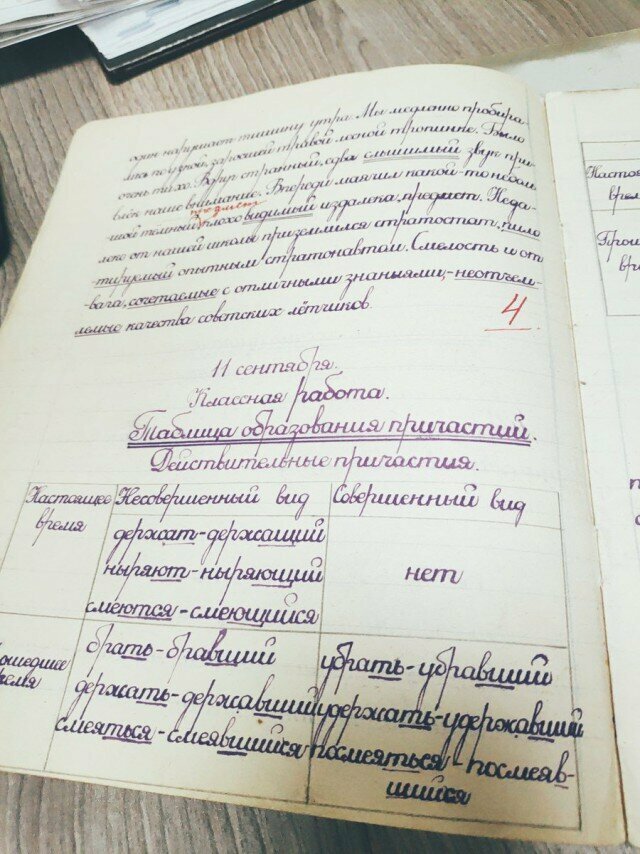 один нарушает тишину утра. Мы медленно пробира-
лись по узкой, заросшей травой лесной тропинке. Было
очень тихо. Вдруг странный, едва слышимый звук при-
влёк наше внимание. Впереди маячил какой-то неболь
шой темный предмет плохо видимый издалека, предмет. Неда-
леко от нашей школы приземлился стратостат, пило
-тируемый опытным стратонавтом. Смелость и от
-вага, сочетаемые с отличными знаньями, - неотъем-
лемые качества советских лётчиков.
4
11 сентября.
Классная работа.
Таблица образования причастий.
Действительные причастия.
Настоящее время
Несовершенный вид
Совершенный вид
держат-держащий
ныряют-ныряющий
смеются-смеющийся
нет
брать-бравший
держать-державший
смеяться-смеявшийся
убрать-убравший
удержать-удержавший
посмеяться-посмеяв-
шийся